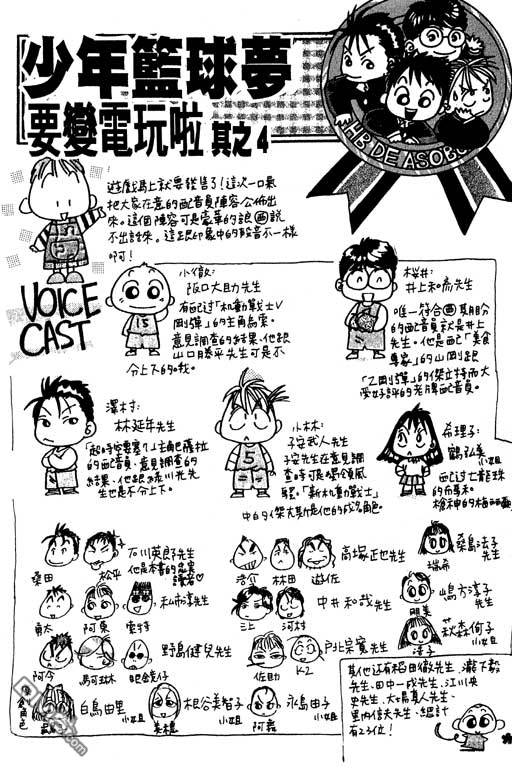 少年籃球夢
要變電玩啦 其之4
HB DE ASOBO
遊戲馬上就要發售了!這次一口氣
把大家在意的配音員陣容公佈出
來。這個陣容可是豪華的說
不出話來。這跟印象中的聲音不一樣
啊!
VOICE
CAST
小徹:
阪口大助先生
有配過「機動戰士V
鋼彈」的主角烏索。
意見調查的結果、他跟
山口勝平先生可是不
分上下的哦。
桜井:
井上和彥先生
唯一符合期盼
的配音員就是井上
先生。他是配「美食
專家」的山岡跟
「Z剛彈」的傑立特而大
受好評的老牌配音員。
澤村:
林延年先生
的配音員、意見調查的
結果、他跟綠川光先
生也是不分上下。
小林:
子安武人先生
子安先生在意見調
查時可是獨領風
騷。「新機動戰士」
中的傑大斯是他的成名角色。
希理子:
鶴弘美小姐
配过七龍珠
的布馬。
桑田
松平
石川英郎先生
他是本書的忠實
讀者♡
清介
林田
遊佐
高塚正也先生
瑞希
桑島法子
小姐
負太
阿東
私市淳先生
三上
河村
中井和哉先生
明美
嶋方淳子
小姐
阿今
馬可林
眼鏡仔
野島健兒先生
佐助
K2
戶北宗寬先生
淳子
秋森侚子
小姐
白鳥由里
小姐
美穗
根谷美智子
小姐
阿嘉
永島由子
小姐
其他还有稻田徹先生、瀧下毅
先生、田中一成先生、江川央
史先生、大場真人先生、
里內信夫先生、總計
有23位!